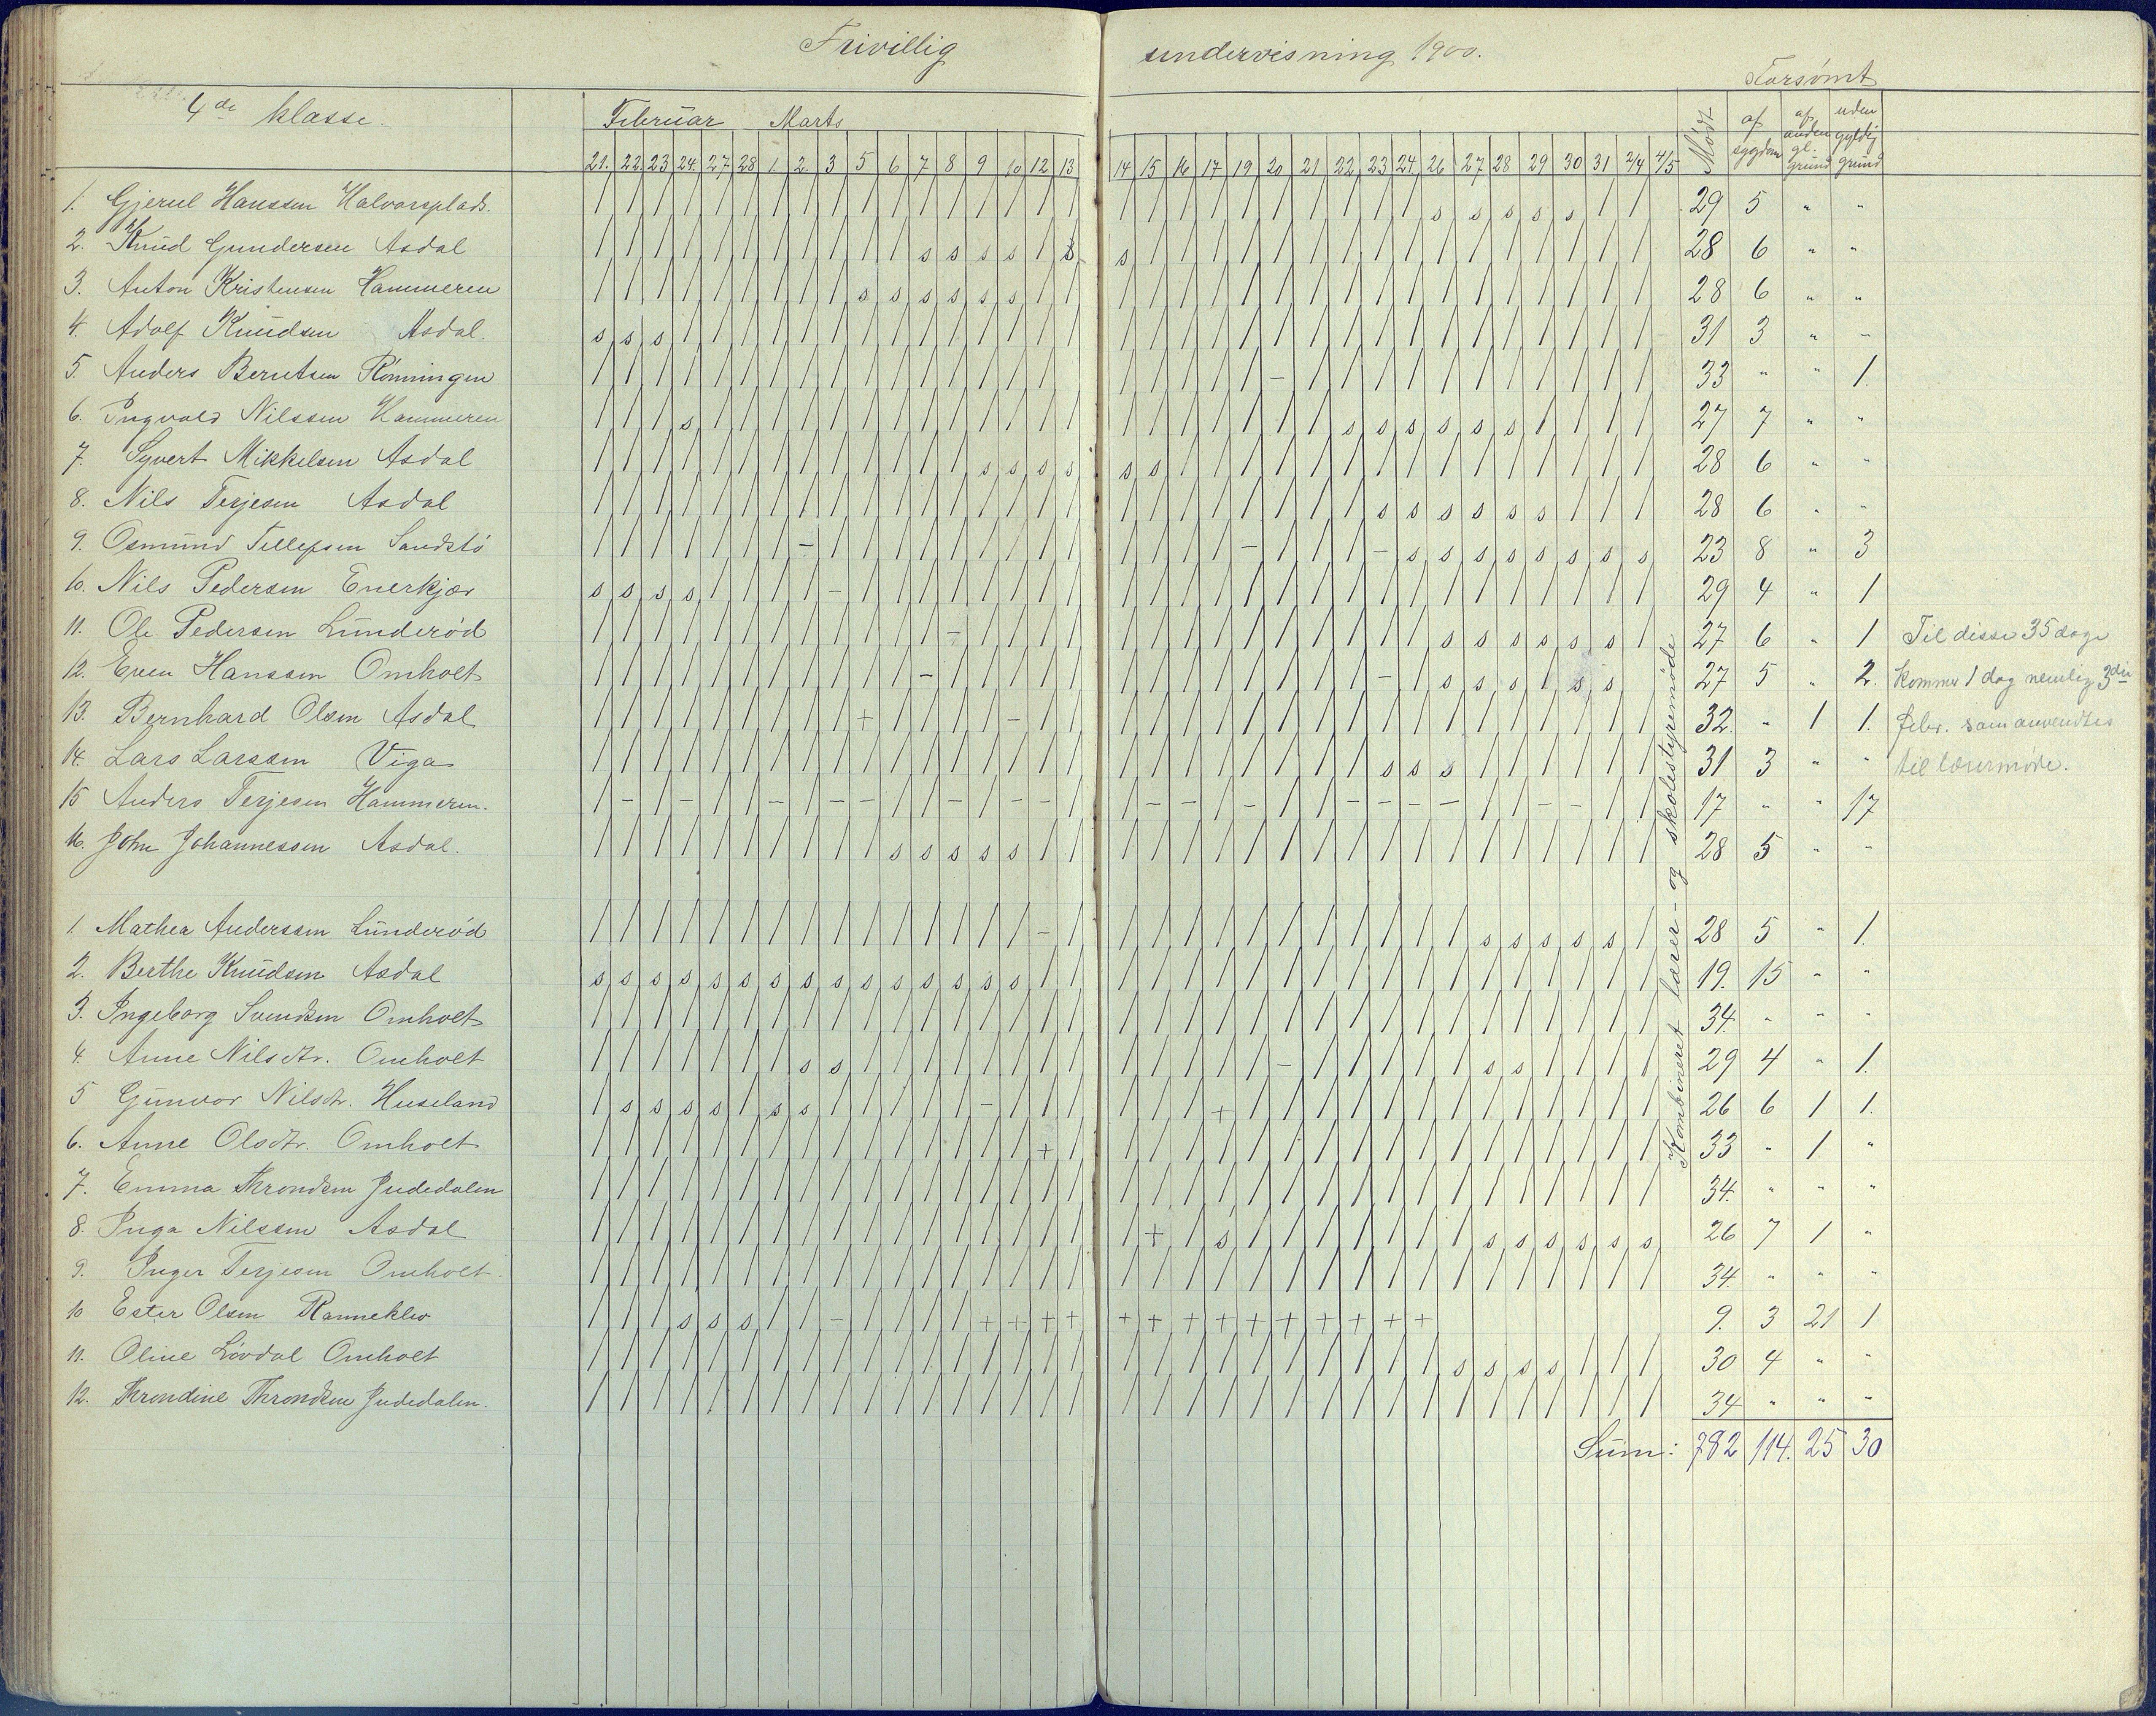 Frivillig undervisning 1900.
Forsømt
4de klasse.
Februar Marts
Mødt af sygdom af anden gl. grund uden gyldig grund
21. 22. 23 24. 27 28 1. 2. 3 5 6 7 8 9 10 12 13 14 15 16 17 19 20 21 22 23 24 26 27 28 29 30 31 2/4 4/5
1. Gjerul Hanssen Halvorsplads. / / / / / / / / / / / / / / / / / / / / / / / / / / / s s s s s / / 29 5 " "
2. Knud Gundersen Asdal / / / / / / / / / / / s s s s / s s / / / / / / / / / / / / / / / / 28 6 " "
3. Anton Kristensen Hammeren / / / / / / / / / s s s s s s / / / / / / / / / / / / / / / / / / / 28 6 " "
4. Adolf Knudsen Asdal. s s s / / / / / / / / / / / / / / / / / / / / / / / / / / / / / / / 31 3 " "
5. Anders Berntsen Rønningen / / / / / / / / / / / / / / / / / / / / / / – / / / / / / / / / / / 33 " " 1.
6. Ingvald Nilssen Hammeren / / / s / / / / / / / / / / / / / / / / / / / / s s s s s s / / / / 27 7 " "
7. Syvert Mikkelsen Asdal / / / / / / / / / / / / / s s s s s s / / / / / / / / / / / / / / / 28 6 " "
8. Nils Terjesen Asdal / / / / / / / / / / / / / / / / / / / / / / / / / s s s s s s / / / 28 6 " "
9. Osmund Tellefsen Sandstø / / / / / / / – / / / / / / / / / / / / / – / / / – s s s s s s s s 23 8 " 3
10. Nils Pedersen Enerkjær s s s s / / / / – / / / / / / / / / / / / / / / / / / / / / / / / / 29 4 " 1
11. Ole Pedersen Lunderød / / / / / / / / / / / / – / / / / / / / / / / / / / / s s s s s s / 27 6 " 1 Til disse 35 dage
12. Even Hanssen Omholt / / / / / / / / / / / – / / / / / / / / / / / / / – / s s s / s s / 27 5 " 2. kommer 1 dag nemlig 3die
13. Bernhard Olsen Asdal / / / / / / / / / + / / / / – / / / / / / / / / / / / / / / / / / / 32. " 1 1. febr. som anvendtes
14. Lars Larssen Viga / / / / / / / / / / / / / / / / / / / / / / / / / s s s / / / / / / 31 3 " " til lærermøde.
15 Anders Terjesen Hammeren. / – / – / / – / – – / / – / – – / – – / – / / – – – / / – – / / 17 " " 17
16. John Johannessen Asdal. / / / / / / / / / / s s s s s / / / / / / / / / / / / / / / / / / / 28 5 " "
Kombineret lærer- og skolestyremøde
1. Mathea Anderssen Lunderød / / / / / / / / / / / / / / / – / / / / / / / / / / / / s s s s s / 28 5 " 1.
2. Berthe Knudsen Asdal s s s s s s s s s s s s s s s / / / / / / / / / / / / / / / / / / / 19. 15 " "
3. Ingeborg Svendsen Omholt / / / / / / / / / / / / / / / / / / / / / / / / / / / / / / / / / / 34. " " "
4. Anne Nilsdtr. Omholt / / / / / / / s s / / / / / / / / / / / / / – / / / / / s s / / / / 29 4 " 1.
5 Gunvor Nilsdtr. Huseland / s s s s / s s / / / / / – / / / / / / + / / / / / / / / / / / / / 26 6 1 1.
6. Anne Olsdtr. Omholt / / / / / / / / / / / / / / / + / / / / / / / / / / / / / / / / / / 33 " 1 "
7. Emma Throndsen Judedalen / / / / / / / / / / / / / / / / / / / / / / / / / / / / / / / / / / 34. " " "
8. Inga Nilssen Asdal / / / / / / / / / / / / / / / / / / + / s / / / / / / / s s s s s s 26 7 1 "
9. Inger Terjesen Omholt. / / / / / / / / / / / / / / / / / / / / / / / / / / / / / / / / / / 34. " " "
10 Ester Olsen Ramneklev / / / s s s / / – / / / / + + + + + + + + + + + + + + 9. 3 21 1
11. Oline Løvdal Omholt / / / / / / / / / / / / / / / / / / / / / / / / / / / s s s s / / / 30 4 " "
12. Throndine Throndsen Judedalen. / / / / / / / / / / / / / / / / / / / / / / / / / / / / / / / / / / 34 " " "
Sum: 782 114. 25 30